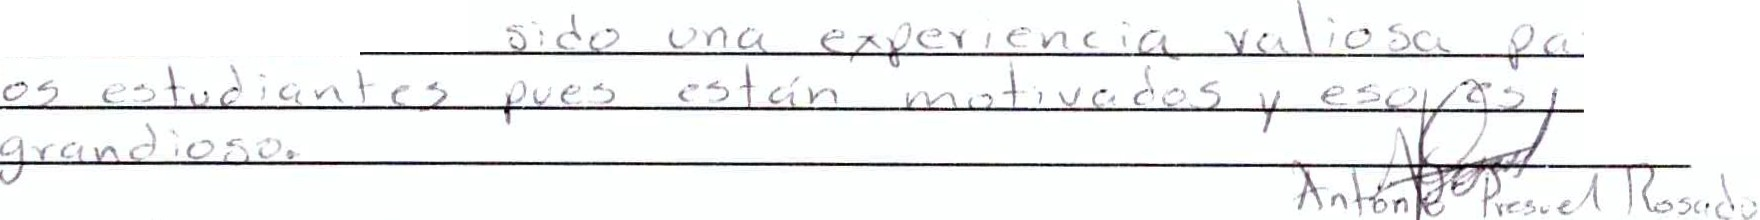 sido una experiencia valiosa pa
os estudiantes pues están motivados y eso es
grandioso.
Antonio Presuel Rosado